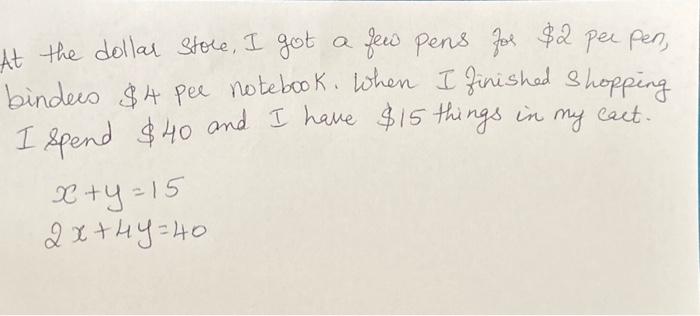 At the dollar store, I got a few pens for $2 per pen,
binders $4 per notebook. When I finished shopping
I spend $40 and I have $15 things in my cart.
x+y=15
2x+4y=40